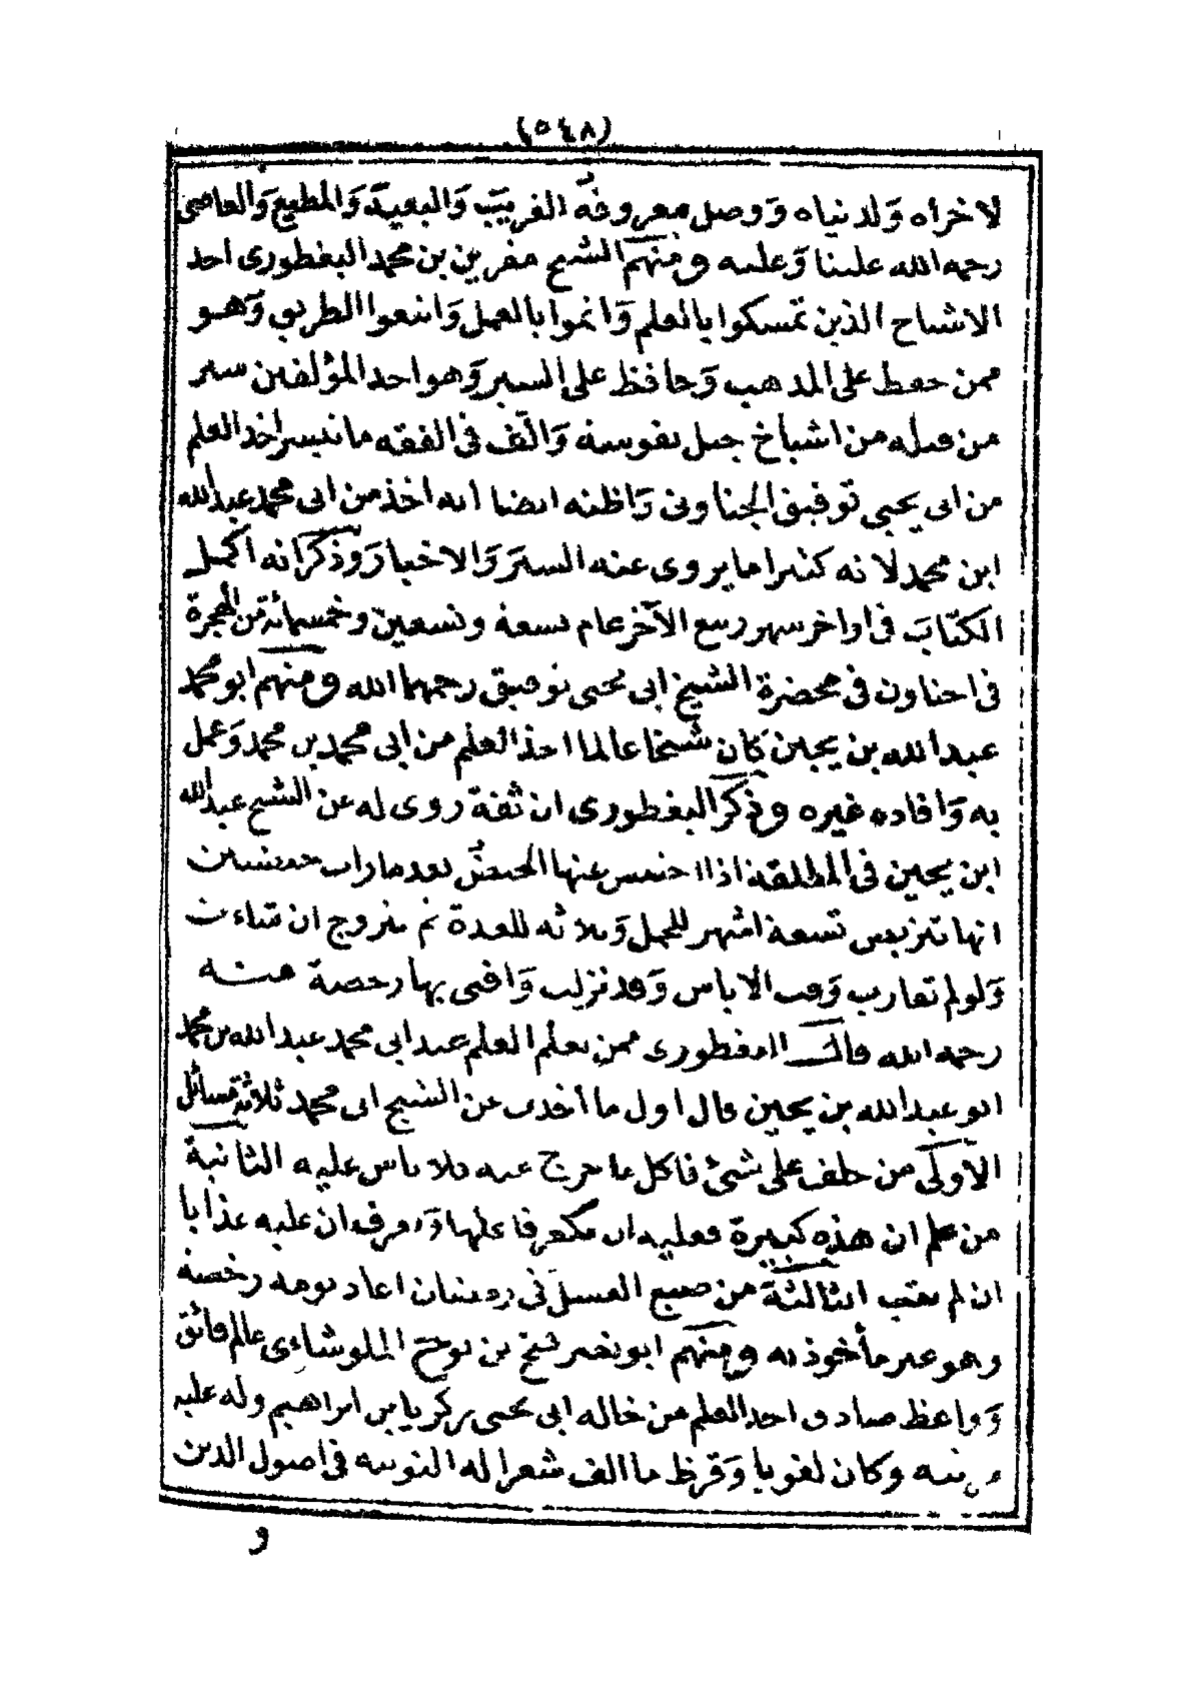 (٥٤٨)
لاخرأه وَلدنياه وَوصل معروفهُ القريبَ وَالبعيدَ وَالمطيعَ وَالعاصى
رحمه الله علينا وَعليه ومنهم الشيخ مقرين بن محمد البغطورى احد
الاشياخ الذين تمسكوا بالعلم وَائتموا بالعمل وَاتبعوا الطريق وَهو
ممن حفظ على المذهب وَحافظ على السير وَهو احد المؤلفين سير
من قبله من اشياخ جبل نفوسة وَالّف فى الفقه ما تيسر اخذ العلم
من ابى يحيى توفيق الجناونى وَاظنه ايضا انه اخذ من ابى محمد عبدالله
ابن محمد لانه كثيرا ما يروى عنه السيَر وَالاخبار وَذكر انه اكمل
الكتابَ فى اواخر شهر ربيع الآخر عام تسعة وتسعين وخمسمائة من الهجرة
فى اجناون فى محضرة الشيخ ابى يحيى توفيق رحمهما الله ومنهم ابو محمد
عبدالله بن يجبين كان شيخا عالما اخذ العلم من ابى محمد بن محمد وَعمل
به وَافاده غيره وذكر البغطورى ان ثقة روى له عن الشيخ عبدالله
ابن يجبين فى المطلقة اذا احتبس عنها الحيضُ بعد ما رات حيضتين
انها تتربص تسعة اشهر للحمل وَثلاثه للعدة ثم تتزوج ان شاءت
وَلو لم تقارب وَقت الاياس وَقد نزلت وَافتى بها رخصة منه
رحمه الله قال البغطورى ممن تعلم العلم عند ابى محمد عبدالله بن محمد
ابو عبدالله بن يجبين قال اول ما أخذت عن الشيخ ابى محمد ثلاثة مسائل
الأولى من حلف على شئ فاكل ما خرج منه فلا باس عليه الثانية
من علم ان هذه كبيرة فعليه ان يكفر فاعلها وَيعرف ان عليه عذابا
ان لم يتب الثالثة من ضيع الغسل فى رمضان اعاد يومه رخصة
وهو غير مأخوذ به ومنهم ابو نصر فتح بن نوح الملوشاءى عالم فائق
وَواعظ صادق اخذ العلم من خاله ابى يحيى زكرياء بن ابراهيم وله عليه
وكان لغويا وَقرظ ما الف شعرا له النونيه فى اصول الدين
و